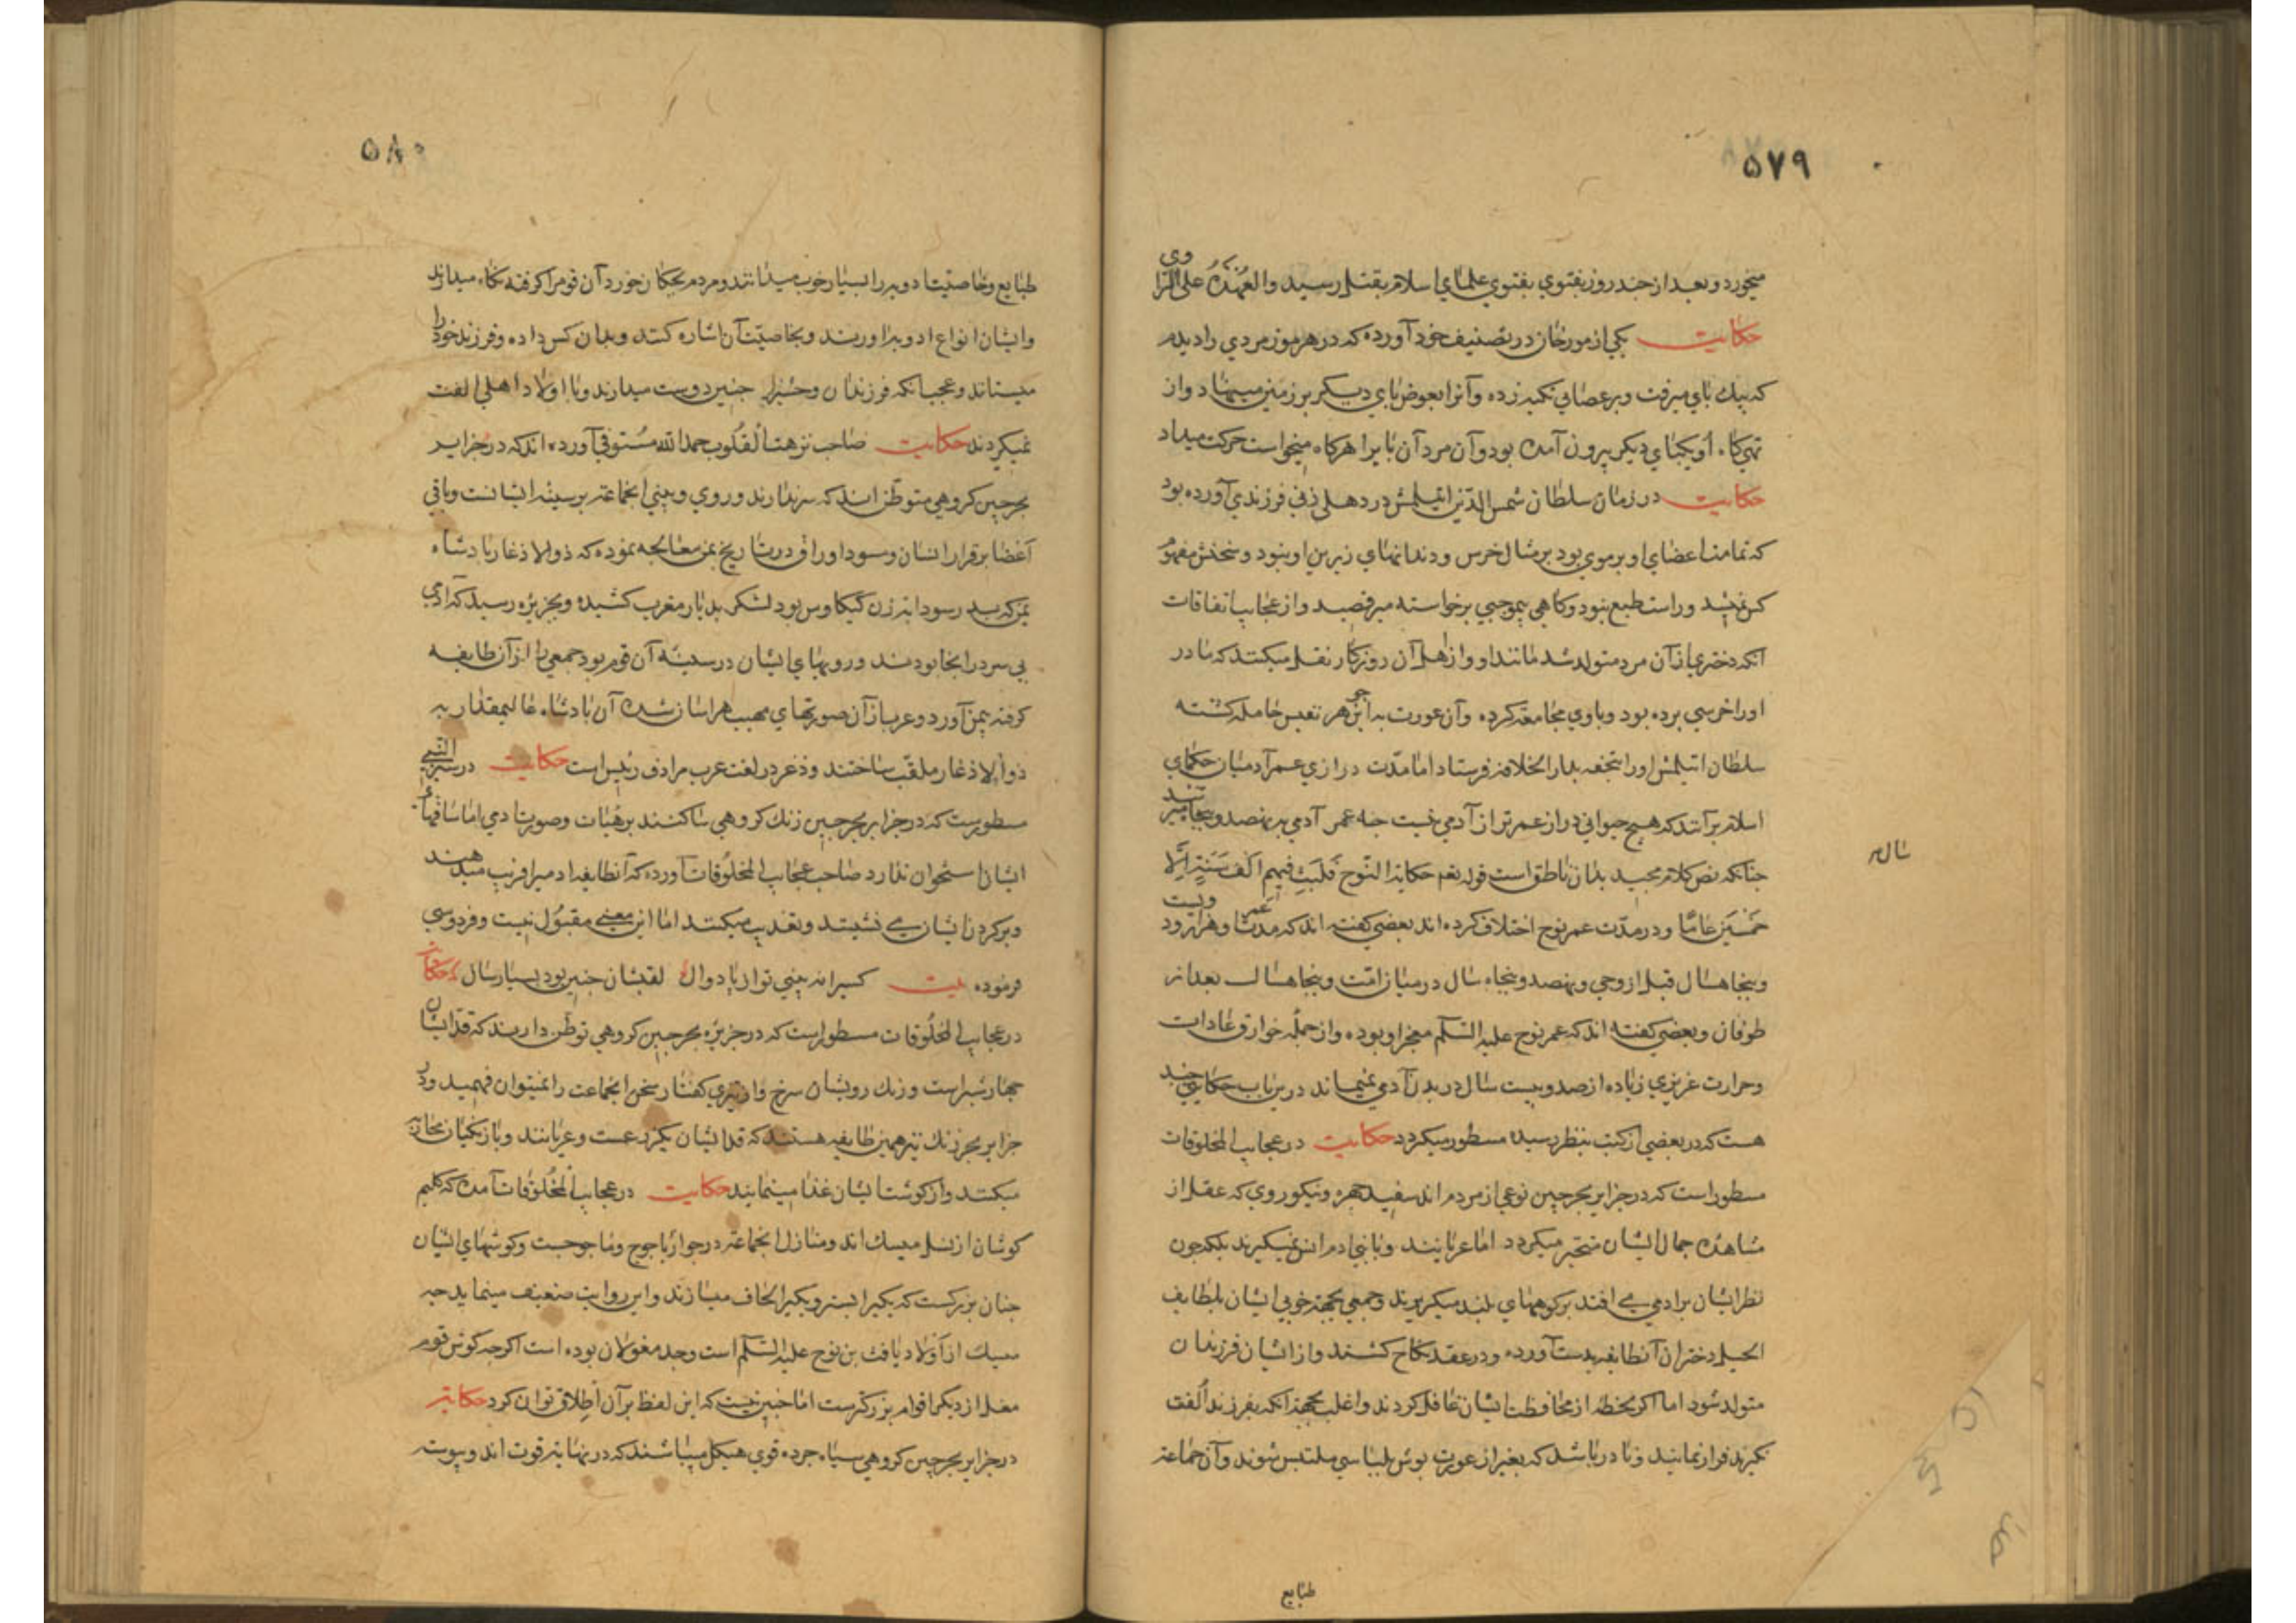 ۵۷۹
میخورد و بعد از چند روز بفتوي بفتوي علمای اسلام بقتل رسید والعهدة علی الراوی
حکایت یکی از مورخان در تصنیف خود آورده که در هرموز مردي را دیدم
که بیك پاي میرفت و بر عصایی تکیه زده و آنرا بعوض پاي دیگر بر زمین مینهاد و از
تهیکاه او یکپاي دیگر بیرون آمده بود و آن مرد آن پا را هرکاه میخواست حرکت میداد
حکایت در زمان سلطان شمس الدین ایتلمش در دهلی زنی فرزندي آورده بود
که تمامت اعضاي او بر موی بود بر مثال خرس و دندانهای زیرین او نبود و سخنش مفهوم
کس نمیشد و راست طبع نبود و کاهی بیموجبی برخواسته میرقصید و از عجایب اتفاقات
آنکه دختري از آن مرد متولد شد مانند او و از اهل آن روزکار نقل میکنند که مادر
او را خرسی برده بود و با وي مجامعة کرده و آن عورت به این جوهر نفیس حامله کشته
سلطان ایتلمش او را بتحفه بدار الخلافه فرستاد اما مدّت درازي عمر آدمیان حکمای
اسلام برآنند که هیچ حیوانی دراز عمرتر از آدمی نیست چه عمر آدمی بنهصد و پنجاه میرسد
سال
چنانکه نص کلام مجید بدان ناطق است قوله تعم حکایة النّوح فَلَبِثَ فیهِم اَلفَ سَنَةٍ اِلَّا
خَمْسینَ عَامًا و در مدّت عمر نوح اختلاف کرده اند بعضی کفته اند که مدت عمر او هزار و دویست
و پنجاه سال قبل از وحی و نهصد و پنجاه سال در میان امّت و پنجاه سال بعد از
طوفان و بعضی کفته اند که عمر نوح علیه السّلم معجز او بوده و از جمله خوارق عادات
و حرارت غریزي زیاده از صد و بیست سال در بدن آدمی نمیماند درین باب حکایتی چند
هست که در بعضی از کتب بنظر رسیده مسطور میکردد حکایت در عجایب المخلوقات
مسطور است که در جزایر بحر چین نوعی از مردم اند سفید چهره و نیکو روی که عقل از
مشاهدۀ جمال ایشان متحیّر میکردد اما عریانند و با بنی ادم انس نمیگیرند بلکه چون
نظر ایشان بر ادمی می افتد بر کوههای بلند میکریزند و جمعی بجهة خوبی ایشان بلطایف
الحیل دختران آنطایفه بدست آورده و در عقد نکاح کشند و از ایشان فرزندان
متولد شود اما اکر بخطۀ از محافظت ایشان غافل کردند و اغلب بجهة آنکه بفرزند اُلفت
نکیرند فرار نمانید و نادر باشد که بغیر از عورت پوش بلباسی ملتبس شوند و آن جماعة
طبایع
۵۸۰
طبایع و خاصیت ادویه را بسیار خوب میدانند و مردم بحکا ن خورد آن قوم را کرفته نکاه میدارند
و ایشان انواع ادویه را اورند و بخاصیّت آن اشاره کنند و بدان کس داده و فرزند خود را
میستاند و عجب آنکه فرزندان وحش را چنین دوست میدارند و با اولاد اهلی الفت
نمیکردند حکایت صاحب نزهت القلوب حمد الله مستوفی آورده اند که در جزایر
بحر چین کروهی متوطّن اند که سر ندارند و روي و بینی انجماعة بر سینه ایشانست و باقی
اعضا بر قرار انسان و مسود اوراق در تاریخ یمن معالجه نموده که ذوالاذغار پادشاه
یمن که پدر سودابه زن کیکاوس بود لشکر بدیار مغرب کشیده و بجزیره رسید که آدمی
بی سر در انجا بودند و رویهای ایشان در سینه آن قوم بود جمعی را از آن طایفه
کرفته بیمن آورد و عرب از آن صورتهاي مهیب هراسان شده آن پادشاه عالیمقدار به
ذوالاذغار ملقّب ساختند و ذعر در لغت عرب مرادف رئیس است حکایت در سیر النبی
مسطورست که در جزایر بحر چین زنك کروهی ساکنند بر هیات و صورت ادمی اما ساقهاء
ایشان استخوان ندارد صاحب عجایب المخلوقات آورده که آنطایفه ادمیرا فریب میدهند
و بر کردن ایشان می نشینند و تعذیب میکنند اما این معنی مقبول نیست و فردوسی
فرموده بیت کسیرا نه بینی توان پا دوال لقبشان چنین بود بسیار سال حکایت
در عجایب المخلوقات مسطور است که در جزیره بحر چین کروهی توطّن دارند که قدّ ایشان
چهار شبر است و رنك رویشان سرخ و از تیزي کفتار سخن انجماعت را نمیتوان فهمید و در
جزایر بحر زنك نیز همین طایفه هستند که قد ایشان یکزدعست و عریانند و با زنکیان محاربه
میکنند و از کوشت ایشان غذا مینمایند حکایت در عجایب المخلوقات آمده که کلیم
کوشان از نسل میسك اند و منازل انجماعة در جوار یاجوج و ماجوجست و کوشهاي ایشان
چنان بزرکست که یکیرا بستر و یکیرا لحاف میسازند و این روایت ضعیف مینماید چه
میسك از اولاد یافث بن نوح علیه السّلم است و جد مغولان بوده است اکرچه کوش قوم
مغل از دیکر اقوام بزرکترست اما چنین نیست که این لفظ بر آن اطلاق توان کرد حکایت
در جزایر بحر چین کروهی سیاه چرده قوي هیکل میباشند که در نهایت قوت اند و پیوسته